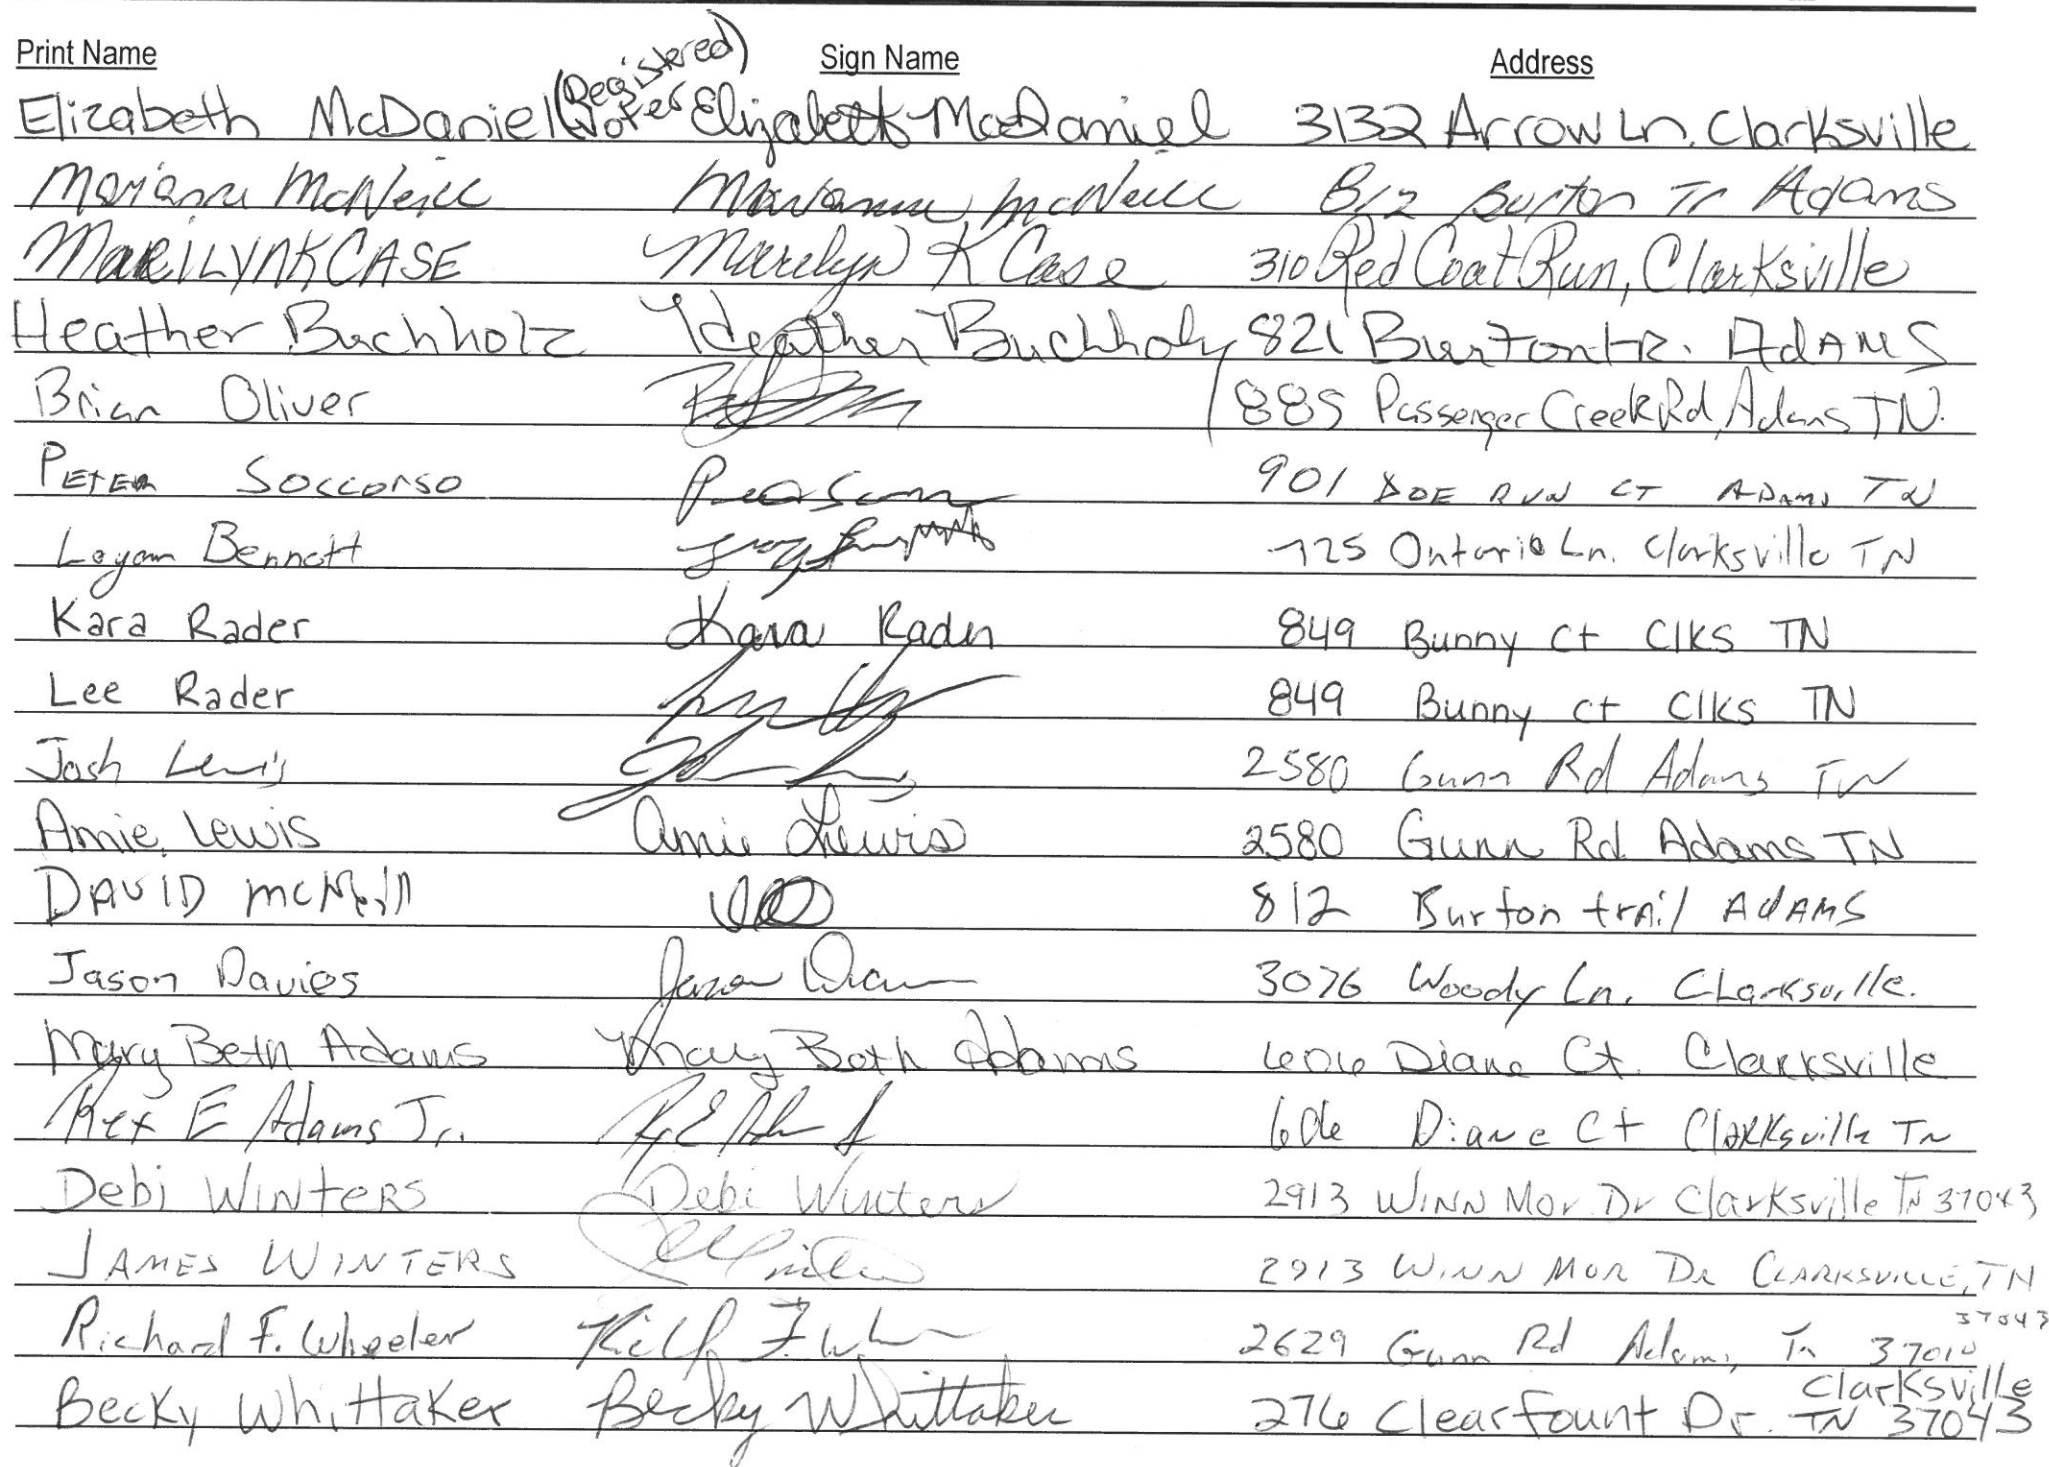 Print Name Sign Name Address
Elizabeth McDaniel (Registered Voter) Elizabeth McDaniel 3132 Arrow Ln. Clarksville
Marianne McNeill Marianne McNeill 812 Burton Tr Adams
MARILYN K CASE Marilyn K Case 310 Red Coat Run, Clarksville
Heather Buchholz Heather Buchholz 821 Burton tr. AdAMS
Brian Oliver 885 Passenger Creek Rd, Adams TN.
PETER SOCCORSO 901 DOE RUN CT ADAMS TN
Logan Bennett 725 Ontario Ln. Clarksville TN
Kara Rader Kara Rader 849 Bunny Ct Clks TN
Lee Rader 849 Bunny ct Clks TN
Josh Lewis 2580 Gunn Rd Adams TN
Amie Lewis Amie Lewis 2580 Gunn Rd Adams TN
DAVID McNeill 812 Burton trail AdAMS
Jason Davies Jason 3076 Woody Ln. Clarksville.
Mary Beth Adams Mary Beth Adams 606 Diane Ct. Clarksville
Rex E Adams Jr. 606 Diane Ct Clarksville TN
Debi WINTERS Debi Winters 2913 WINN Mor Dr Clarksville TN 37043
JAMES WINTERS 2913 WINN MOR DR CLARKSVILLE, TN 37043
Richard F. Wheeler 2629 Gunn Rd Adams, Tn 37010
Becky Whittaker Becky Whittaker 276 Clearfount Dr. Clarksville TN 37043